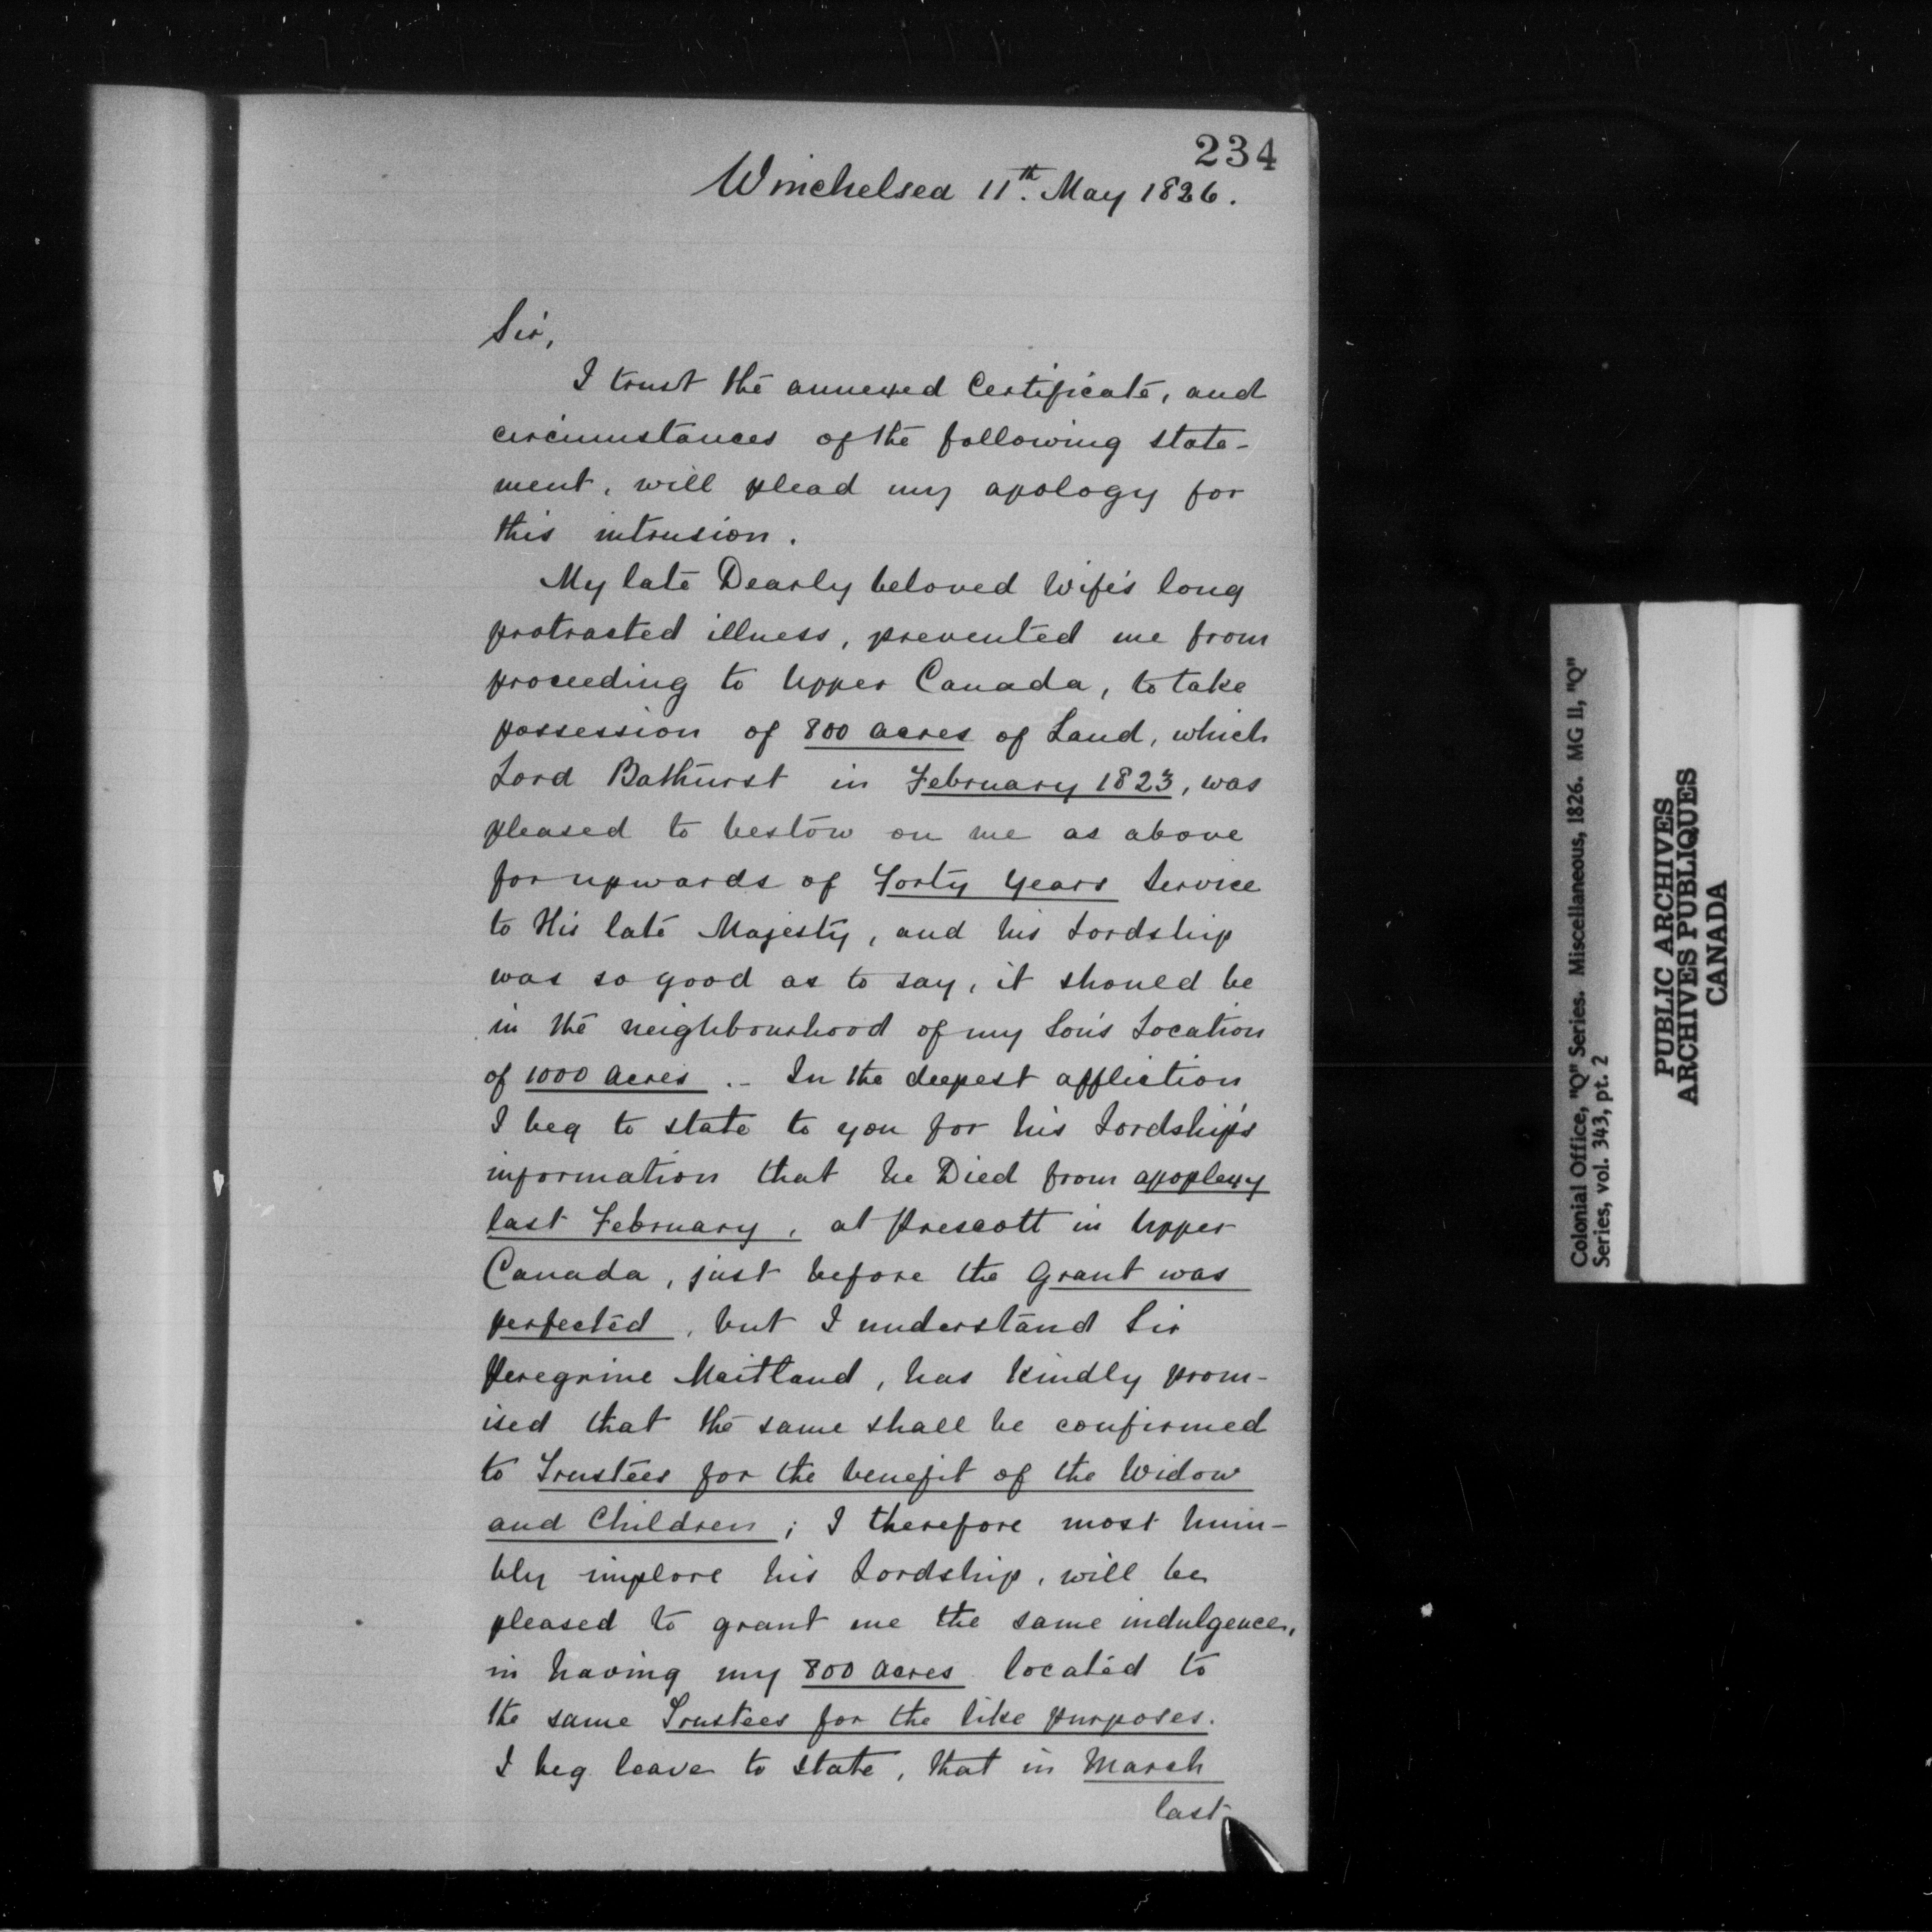 234
Winchelsea 11th. May 1826.
Sir,
I trust the annexed Certificate, and
circumstances of the following state-
ment, will plead my apology for
this intrusion.
My late Dearly beloved Wife's long
protracted illness, prevented me from
proceeding to Upper Canada, to take
possession of 800 acres of Land, which
Lord Bathurst in February 1823, was
pleased to bestow on me as above
for upwards of Forty Years Service
to His late Majesty, and his Lordship
was so good as to say, it should be
in the neighbourhood of my Son's Location
of 1000 Acres .- In the deepest affliction
I beg to state to you for his Lordship's
information that he Died from apoplexy
last February, at Prescott in Upper
Canada, just before the Grant was
perfected, but I understand Sir
Peregrine Maitland, has kindly prom-
ised that the same shall be confirmed
to Trustees for the benefit of the Widow
and Children; I therefore most hum-
bly implore his Lordship, will be
pleased to grant me the same indulgence,
in having my 800 Acres located to
the same Trustees for the like purposes.
I beg leave to state, that in March
last
Colonial Office, "Q" Series. Miscellaneous, 1826. MG 11, "Q"
Series, vol. 343, pt. 2
PUBLIC ARCHIVES
ARCHIVES PUBLIQUES
CANADA